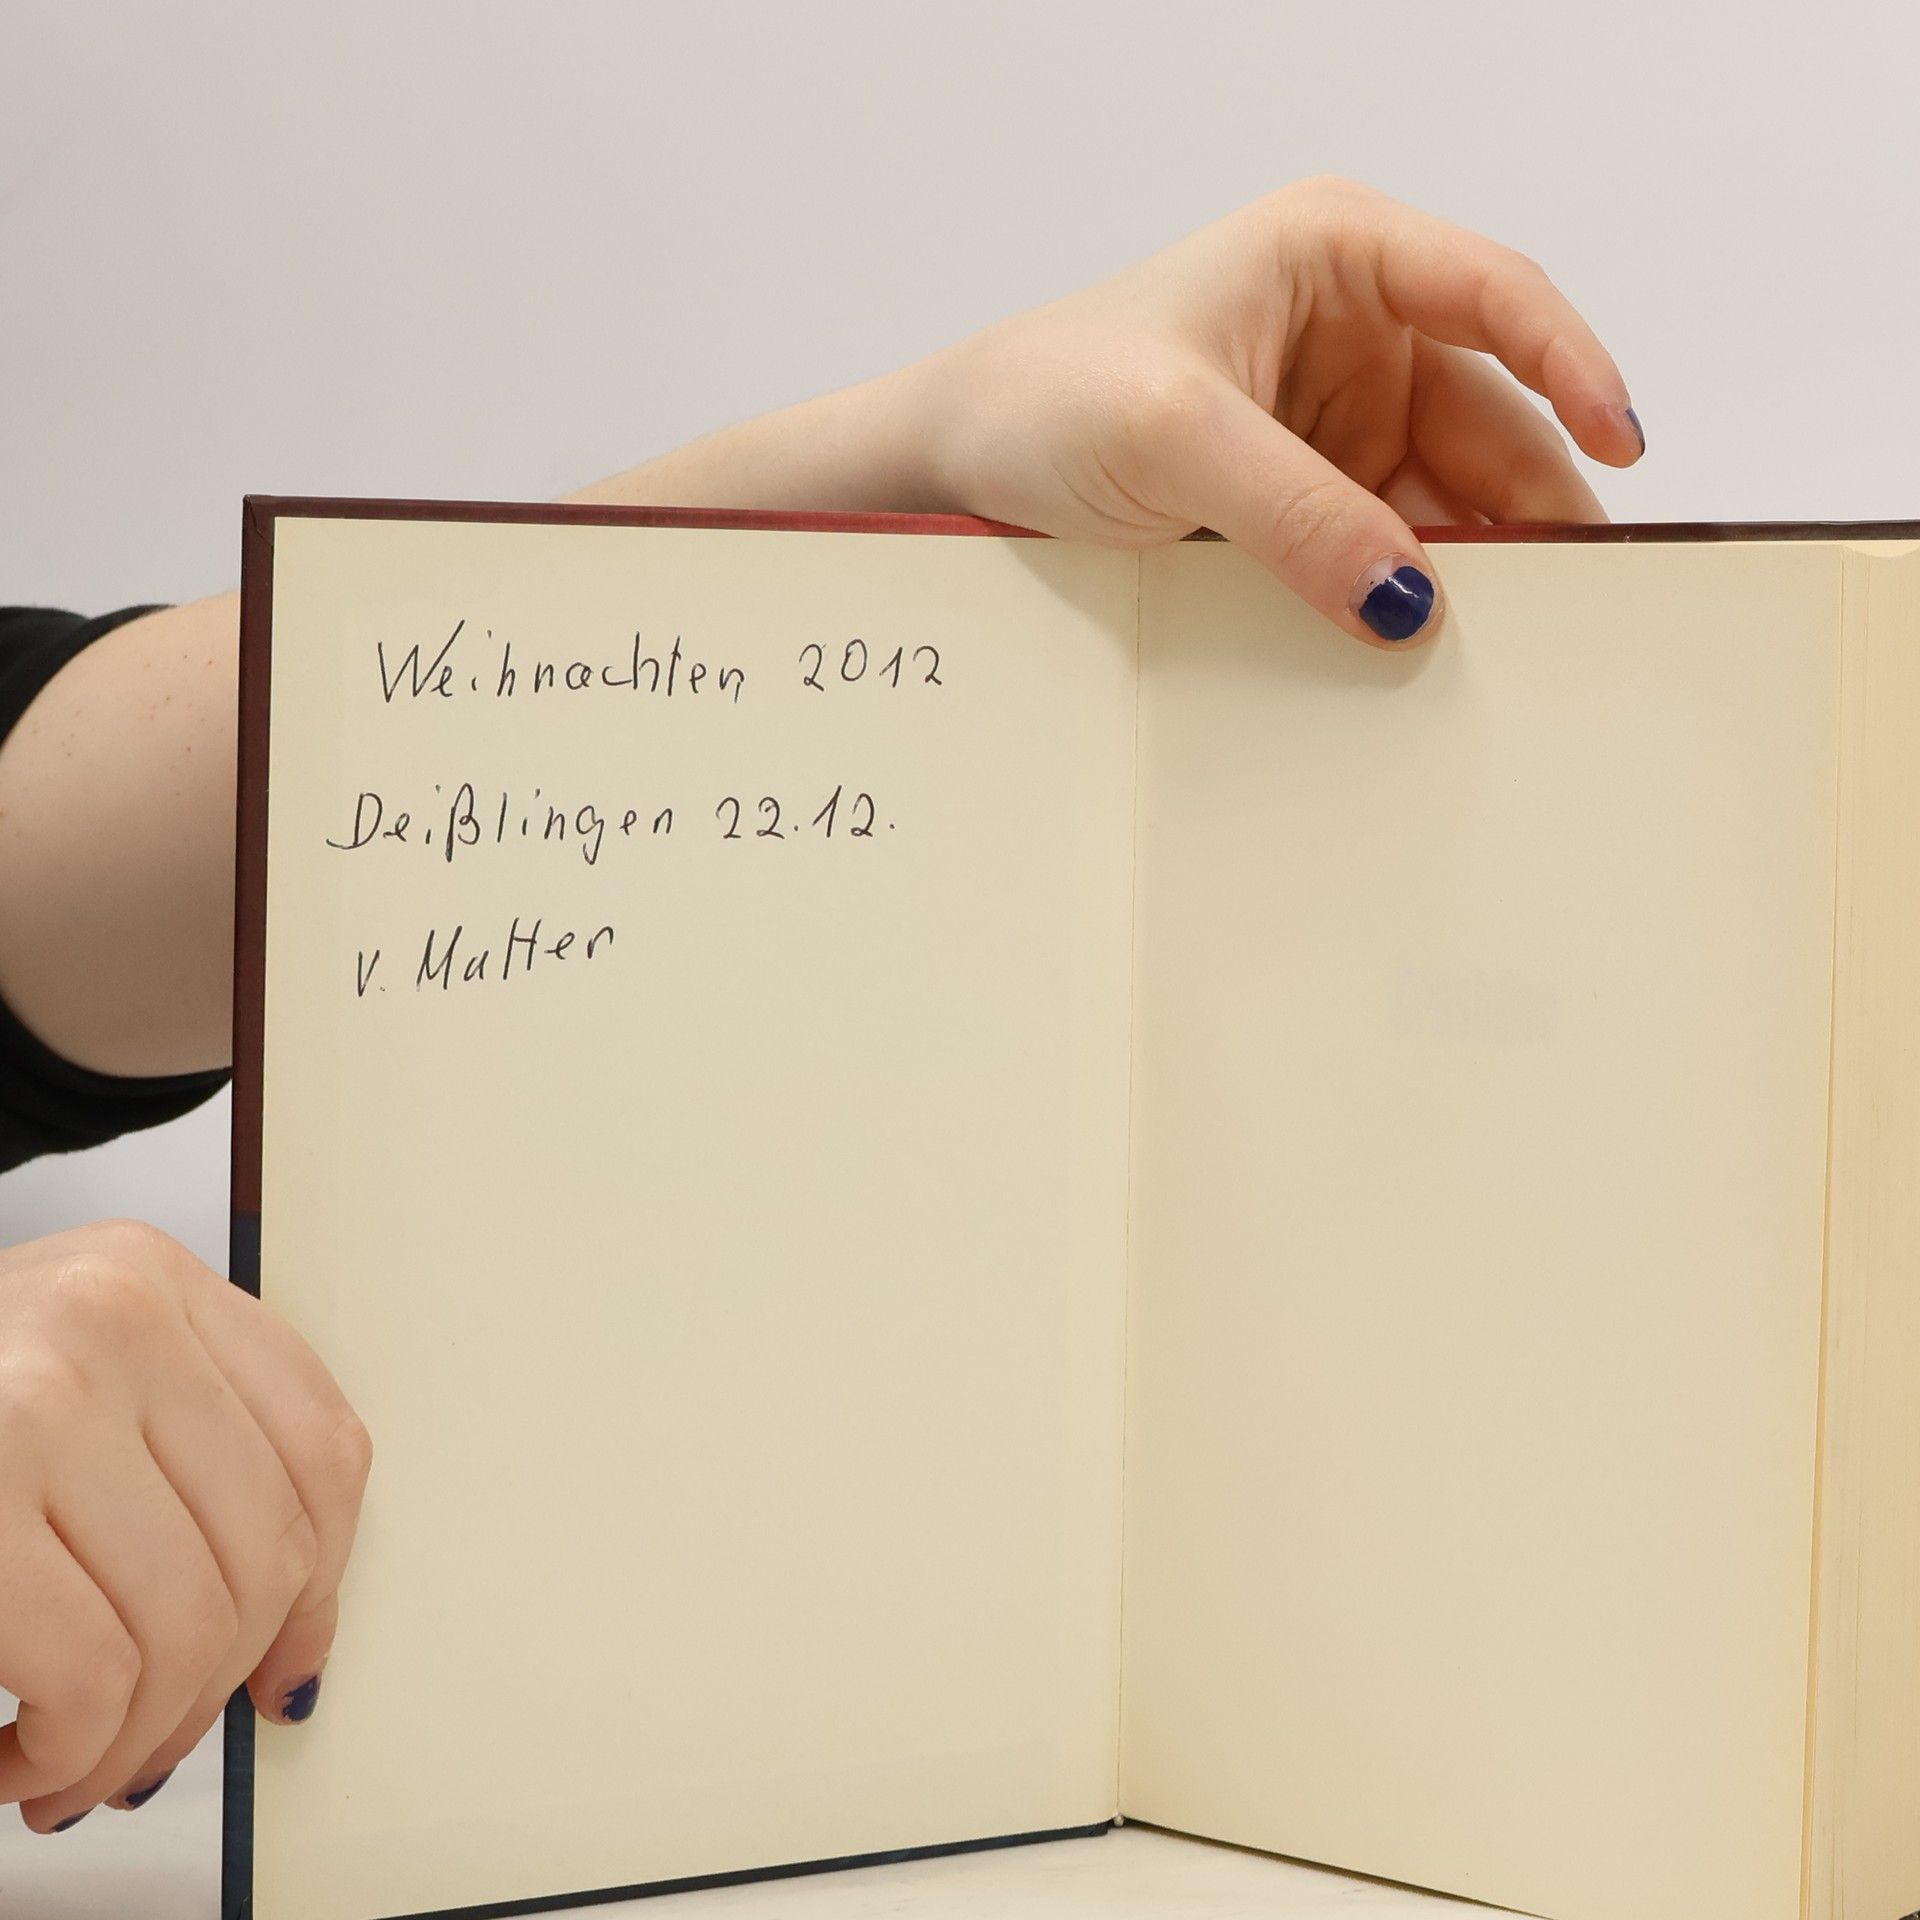 Weihnachten 2012
Deißlingen 22.12.
v. Mutter